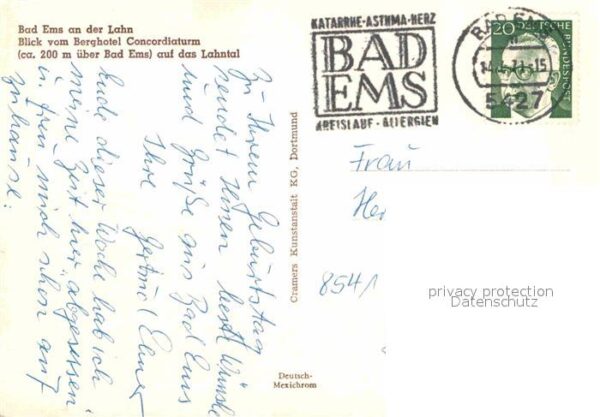 Bad Ems an der Lahn
Blick vom Berghotel Concordiaturm
(ca. 200 m über Bad Ems) auf das Lahntal
Zu Ihrem Geburtstag
sendet Ihnen beste Wünsche
und Grüße aus Bad Ems
Ihre
Gertrud
Ende dieser Woche hab ich
meine Zeit hier „abgesessen"
u. freu mich schon auf
zuhause.
Cramers Kunstanstalt KG, Dortmund
Deutsch-
Mexichrom
KATARRHE-ASTHMA-HERZ
BAD
EMS
KREISLAUF-ALLERGIEN
BAD EMS
5427
20
DEUTSCHE
BUNDESPOST
Frau
He
854/1
privacy protection
Datenschutz